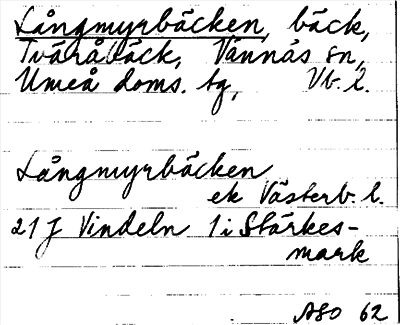 Långmyrbäcken, bäck,
Tväråbäck, Vännäs sn,
Umeå doms. tg, Vb. l.
Långmyrbäcken
ek Västerb. l.
21 J Vindeln 1 i Stärkes-
mark
ASO 62